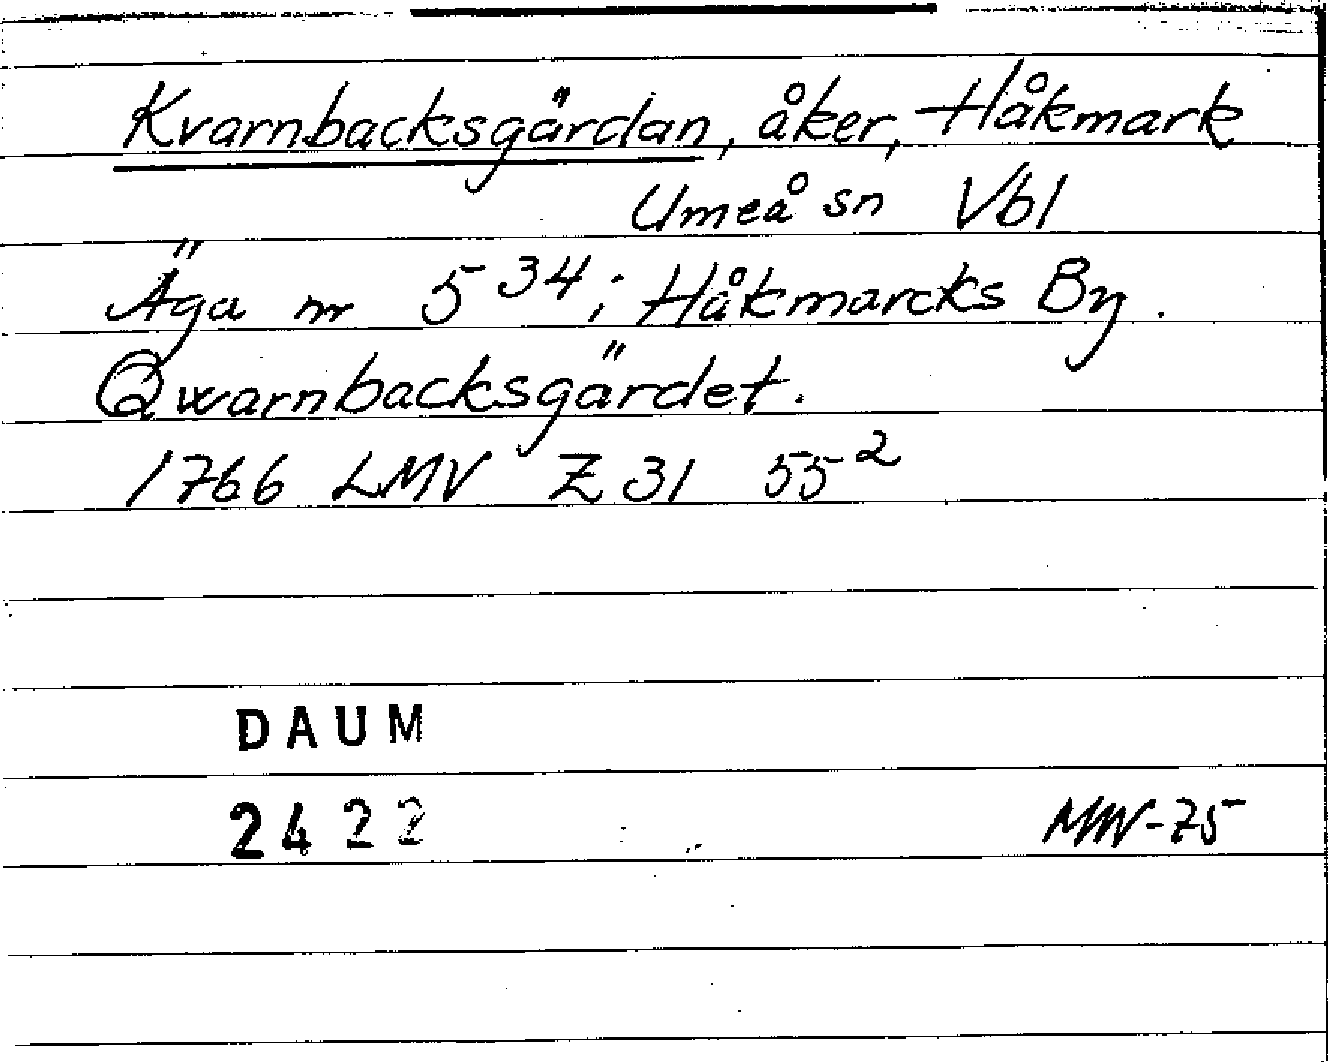 Kvarnbacksgärdan, åker, Håkmark
Umeå sn Vbl
Äga nr 5³⁴; Håkmarcks By.
Qwarnbacksgärdet.
1766 LMV Z 31 55²
DAUM
2422
MW-75